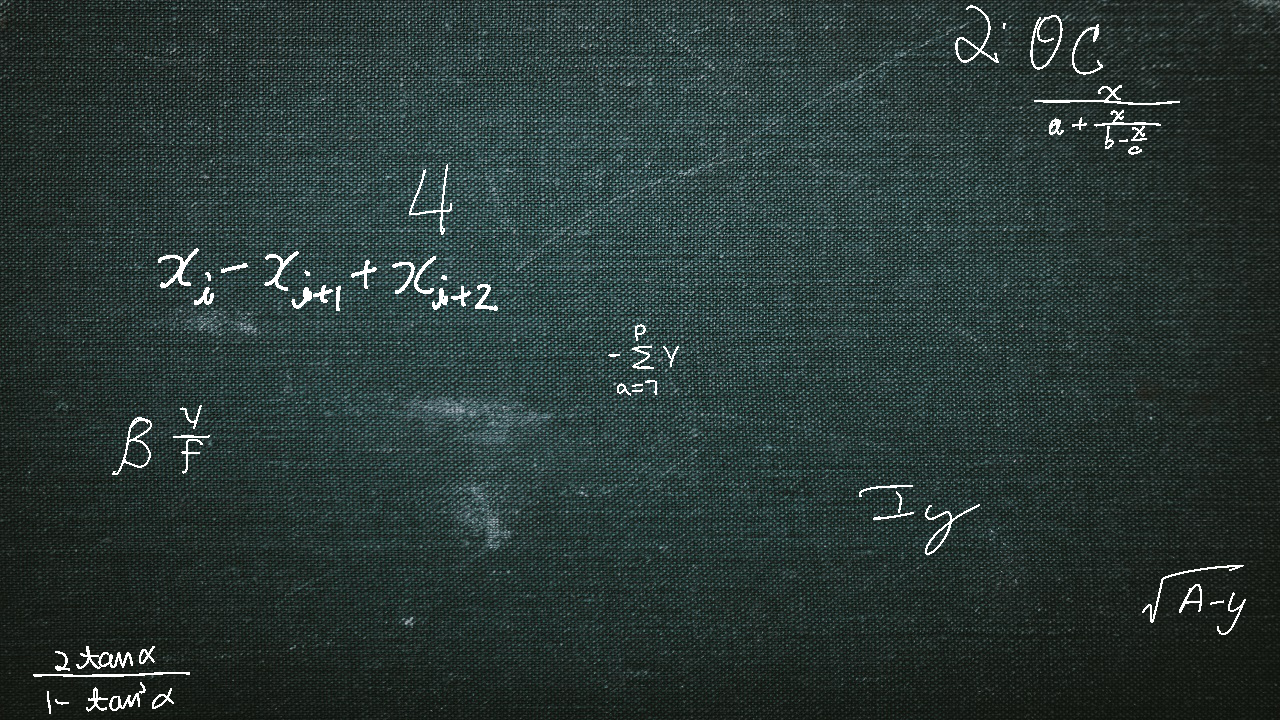 2. θC
\frac{x}{a+\frac{x}{b-\frac{x}{c}}}
4
x_i - x_{i+1} + x_{i+2}
-\sum_{a=7}^{p} Y
β \frac{Y}{F}
I y
\sqrt{A-y}
\frac{2\tan α}{1-\tan^2 α}